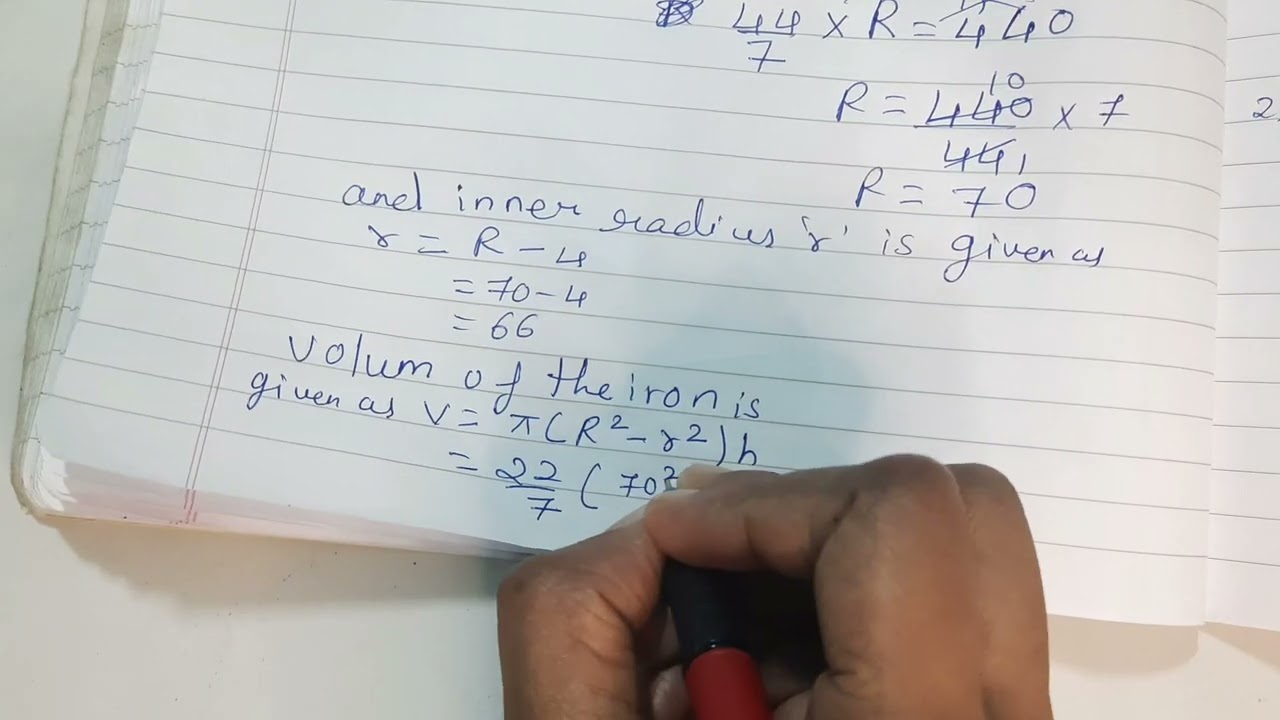 44/7 × R = 440
10
R = 440/44 × 7
1
R = 70
and inner radius 'r' is given as
r = R - 4
= 70 - 4
= 66
Volum of the iron is
given as V = π(R² - r²)h
= 22/7 (70²
2.